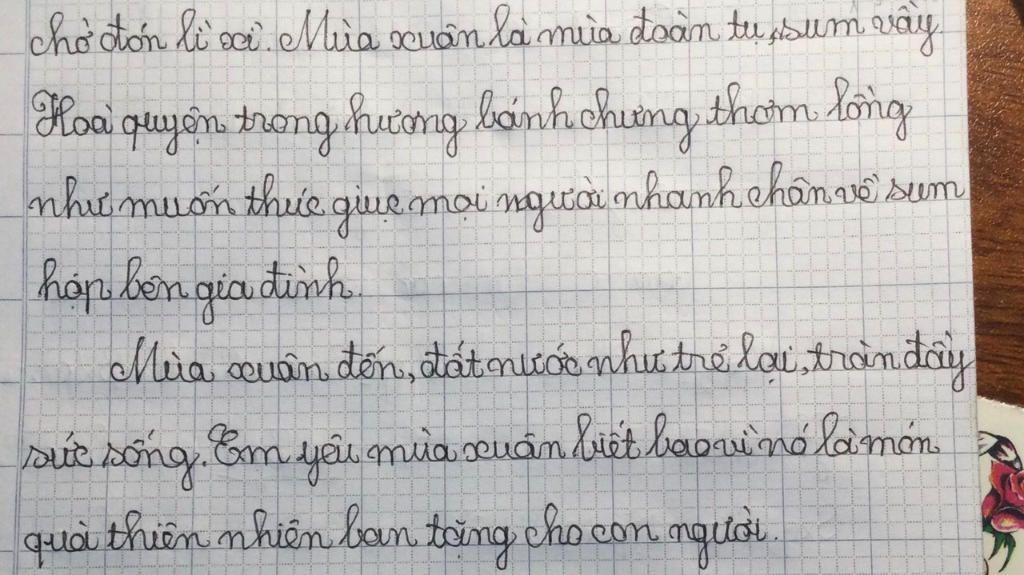 chờ đón lì xì. Mùa xuân là mùa đoàn tụ, sum vầy.
Hoà quyện trong hương bánh chưng thơm lồng
như muốn thúc giục mọi người nhanh chân về sum
họp bên gia đình.
Mùa xuân đến, đất nước như trẻ lại, tràn đầy
sức sống. Em yêu mùa xuân biết bao vì nó là món
quà thiên nhiên ban tặng cho con người.